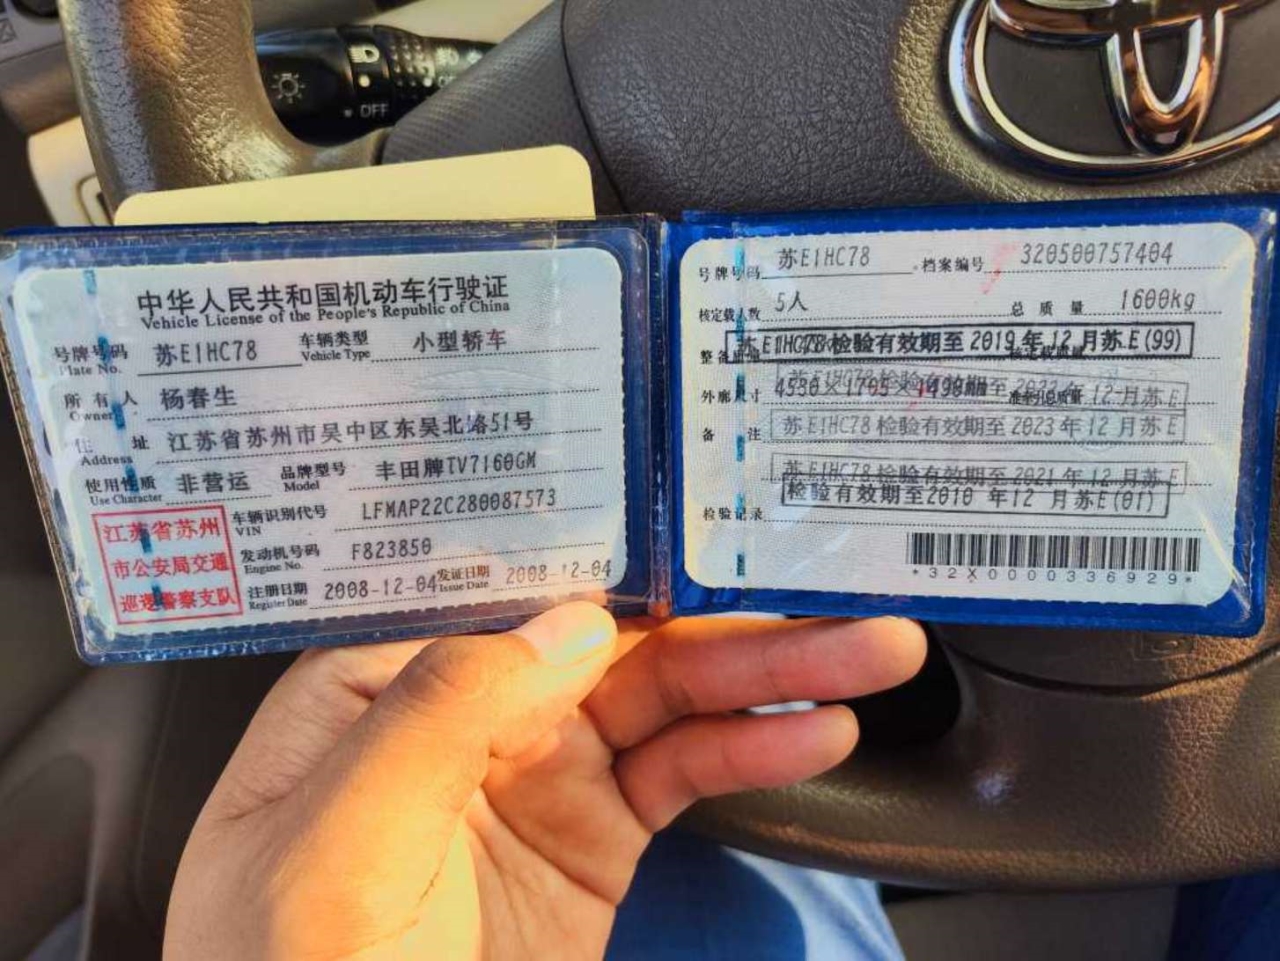 OFF
中华人民共和国机动车行驶证
Vehicle License of the People's Republic of China
号牌号码 苏E1HC78 车辆类型 小型轿车
Plate No. Vehicle Type
所有人 杨春生
Owner
住址 江苏省苏州市吴中区东吴北路51号
Address
使用性质 非营运 品牌型号 丰田牌TV7160GM
Use Character Model
江苏省苏州
市公安局交通
巡逻警察支队
车辆识别代号 LFMAP22C280087573
VIN
发动机号码 F823850
Engine No.
注册日期 2008-12-04 发证日期 2008-12-04
Register Date Issue Date
号牌号码 苏E1HC78 档案编号 320500757404
核定载人数 5人 总质量 1600kg
整备质量
苏E1HC78检验有效期至2019年12月苏E(99)
苏E1HC78检验有效期至2022年12月苏E
外廓尺寸 4530×1705×1490mm 准牵引总质量
备注 苏E1HC78检验有效期至2023年12月苏E
苏E1HC78检验有效期至2021年12月苏E
检验有效期至2010年12月苏E(01)
检验记录
*32X0000336929*